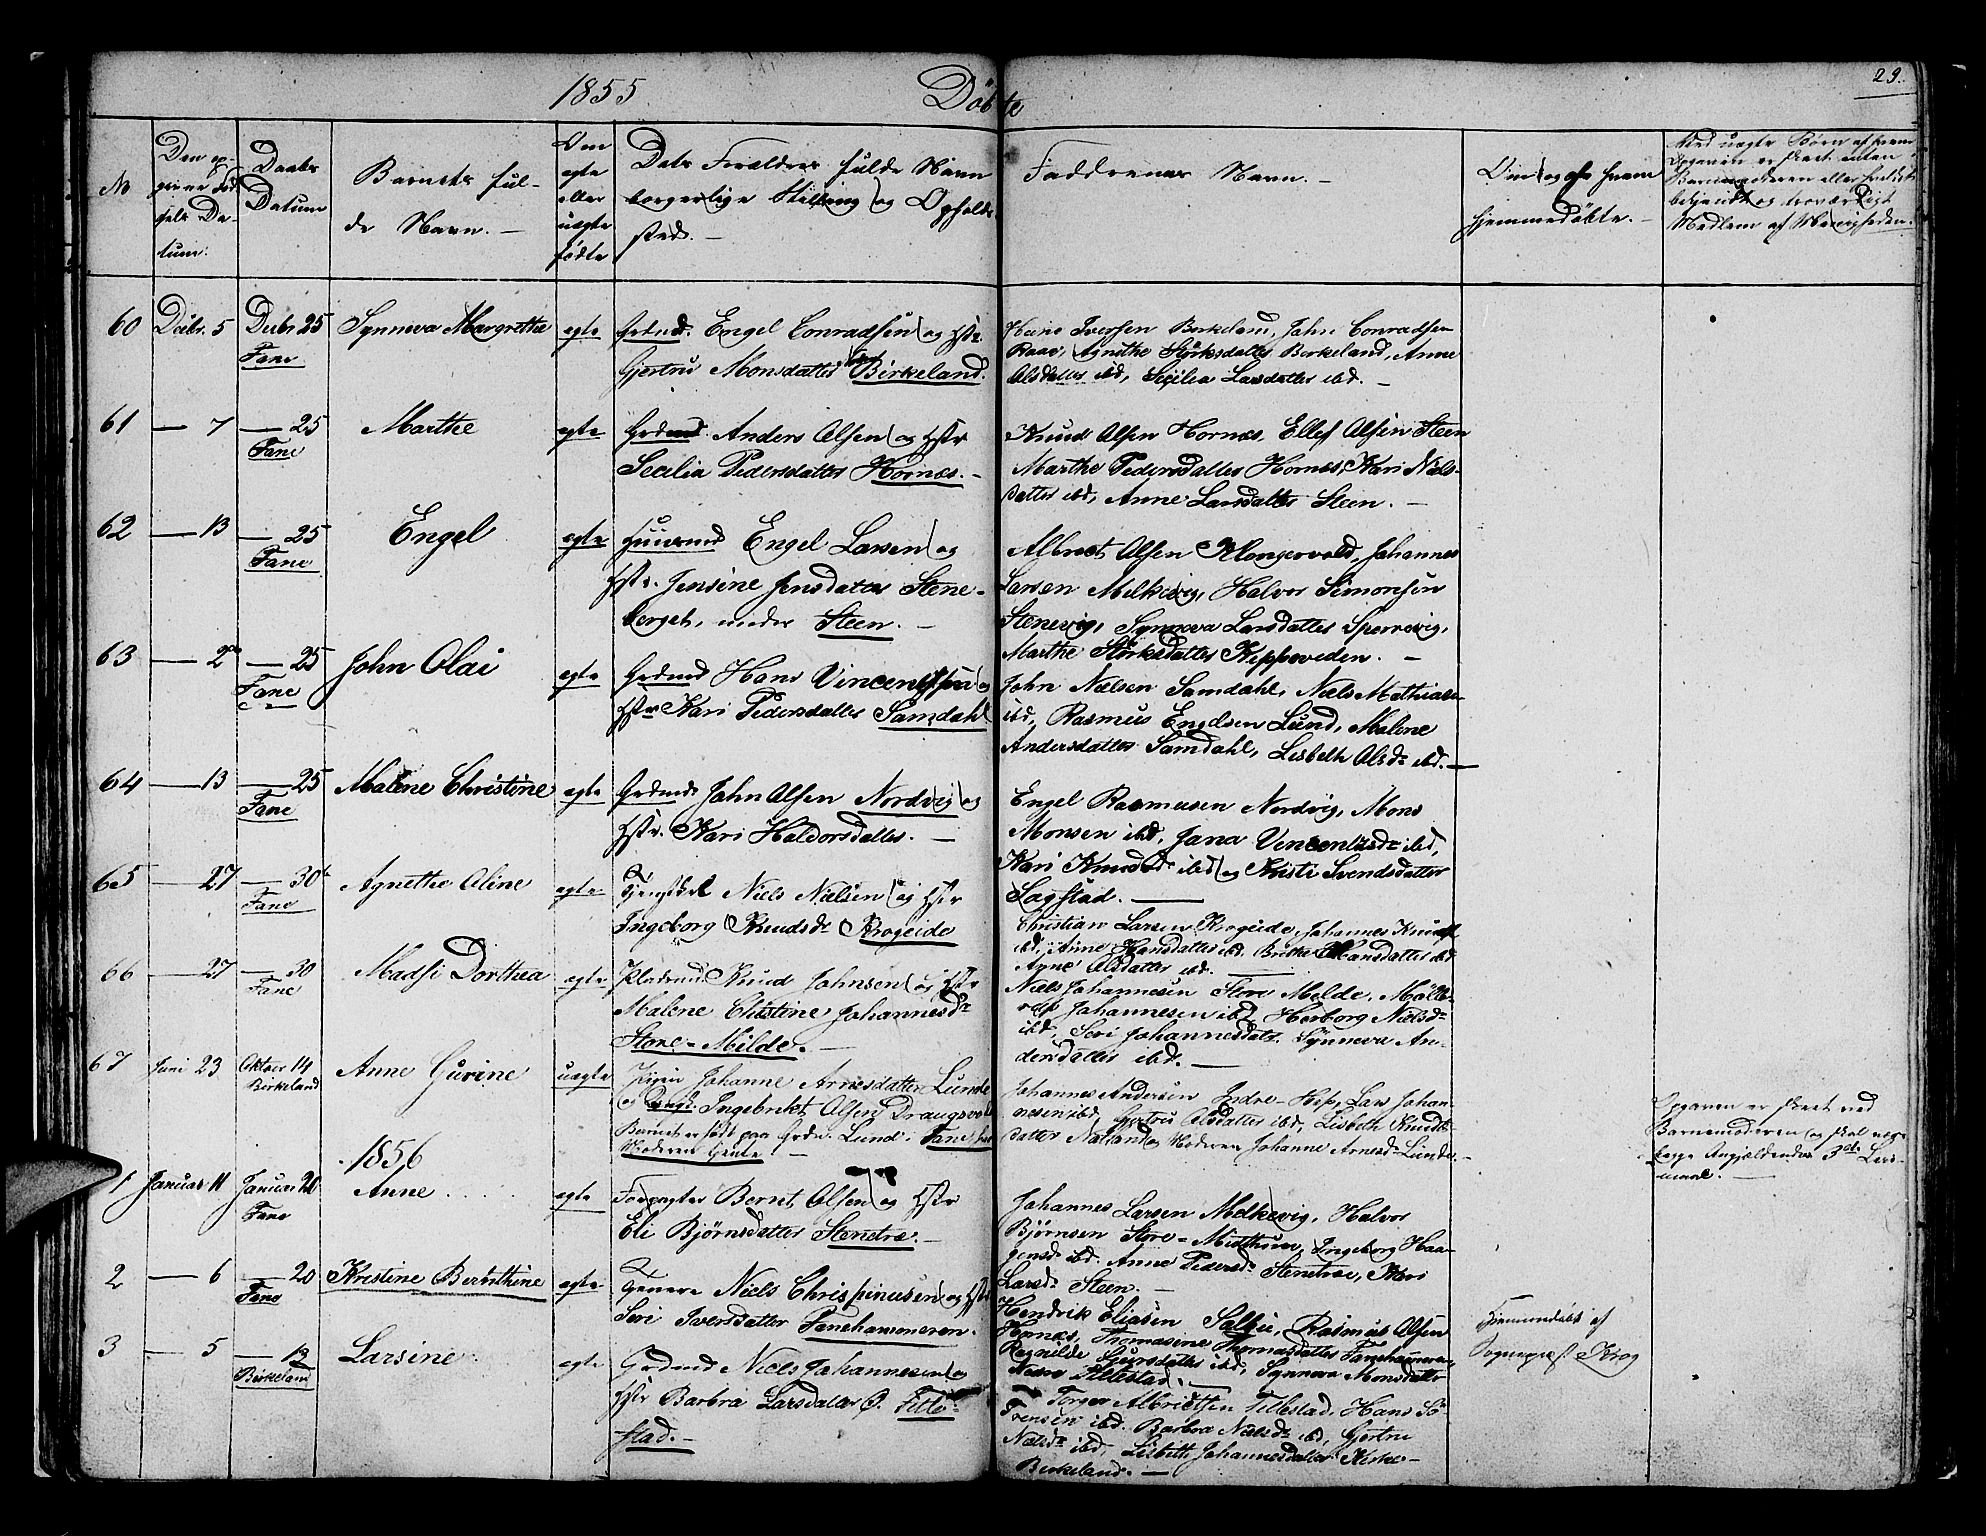 1855 Döbte 29.
No
Den op-
givne Föd-
sels Da-
tum.
Daabs
Datum
Barnets ful-
de Navn. -
Om
egte
eller
uegte
födte
Dets Forældres fulde Navn
borgerlige Stilling og Opholds
sted. -
Faddrenes Navn. -
Om og af hvem
hjemmedöbte. -
Ved uegte Börn af hvem
Opgaven er skeet enten
Barnemoderen eller hvilket
bekjendt og troværdigt
Medlem af Menigheden.
60 Decbr. 5 Decbr 25 Synneva Margrethe egte Grdmd. Engel Conradsen og Hstr.
Fane
Gjertru Monsdatter Birkeland.
Iversen Birkeland, John Conradsen
Agnethe Störksdatter Birkeland, Anne
Olsdatter ibd, Secilia Larsdatter ibd. -
61 — 7 — 25 Marthe egte Grdmd. Anders Olsen og Hstr
Fane
Secilia Pedersdatter Hornæs. -
Knud Olsen Hornæs, Ellef Olsen Steen
Marthe Pedersdatter Hornæs, Kari Niels-
datter ibd, Anne Larsdatter Steen. -
62 — 13 — 25 Engel egte Huusmd Engel Larsen og
Fane
Hstr. Jensine Jensdatter Stene-
berget, under Steen. -
Albrict Olsen Klongervold, Johannes
Larsen Melkevig, Halvor Simonsen
Stenevig, Synneva Larsdatter Sperrevig,
Marthe Störksdatter Kipperveden. -
63 — 2 — 25 John Olai egte Grdmd Hans Vincentsen og
Fane
Hstr Kari Pedersdatter Samdahl
John Nielsen Samdahl, Niels Mathias.
ibd, Rasmus Engelsen Lund, Malene
Andersdatter Samdahl, Lisbeth Olsdr ibd. -
64 — 13 — 25 Malene Christine egte Grdmd. John Olsen Nordvig og
Fane
Hstr. Kari Haldorsdatter. -
Engel Rasmusen Nordvig, Mons
Monsen ibd, Jana Vincentsdr ibd,
Kari Knudsdr ibd og Kristi Svendsdatter
Sagstad. -
65 — 27 — 30 Agnethe Oline egte Niels Nielsen og Hstr
Fane
Ingeborg Knudsdr Krogeide
Christian Larsen Krogeide, Johannes Knuds.
ibd, Anne Hansdatter ibd. Hansdatter ibd
Olsdatter ibd. -
66 — 27 — 30 Madsi Dorthea egte Knud Johnsen og Hstr
Fane
Malene Christine Johannesdr
Store-Milde. -
Niels Johannesen Store Melde,
Johannesen ibd, Herborg Nielsdr
ibd, Seri Johannesdatr. Synneva An-
dersdatter ibd. -
67 Juni 23 Oktober 14 Anne Gurine uegte Pigen Johanne Arnesdatter Lunde
Birkeland
og Ungk. Ingebrikt Olsen Draugsvold
Barnet er födt paa Grdn. Lund.
Moderens
Johannes Andersen Indre-Hop, Lars Johan-
nesen ibd, Gjertru Olsdatter ibd, Lisbeth Knuds-
datter Natland og Moderen Johanne Arnesdr Lunde. -
Opgaven er skeet ved
Barnemoderen og skal være
begge Angjældendes 3die Leier-
maal. -
1856
1 Januar 11 Januar 20 Anne egte Forpagter Bernt Olsen og Hstr
Fane
Eli Björnsdatter Stenetræ. -
Johannes Larsen Melkevig, Halvor
Björnsen Store-Midthun, Ingeborg Haa-
gensd ibd. Anne Pedersdr Stenetræ, Kari
Larsdr Steen. -
2 — 6 — 20 Kristine Berthine egte Niels Chrispinusen og Hstr
Fane
Seri Iversdatter Fanehammeren.
Hendrik Eliasen Rasmus Olsen
Hornæs, Thomasine Thomasdatter Fanehammeren
Ragnilde Sjursdatter ibd, Synneva Monsdatter
Hjemmedöbt af
Sogneprest Krog
3 — 5 — 13 Larsine egte Grdmd Niels Johannesen og
Birkeland
Hstr Barbra Larsdatter Title-
stad. -
Torger Albriktsen Titlestad, Hans Sö-
rensen ibd. Barbra Nielsdr ibd, Gjertru
Nielsdr ibd, Lisbeth Johannesdatter Kirke-
Birkeland. -